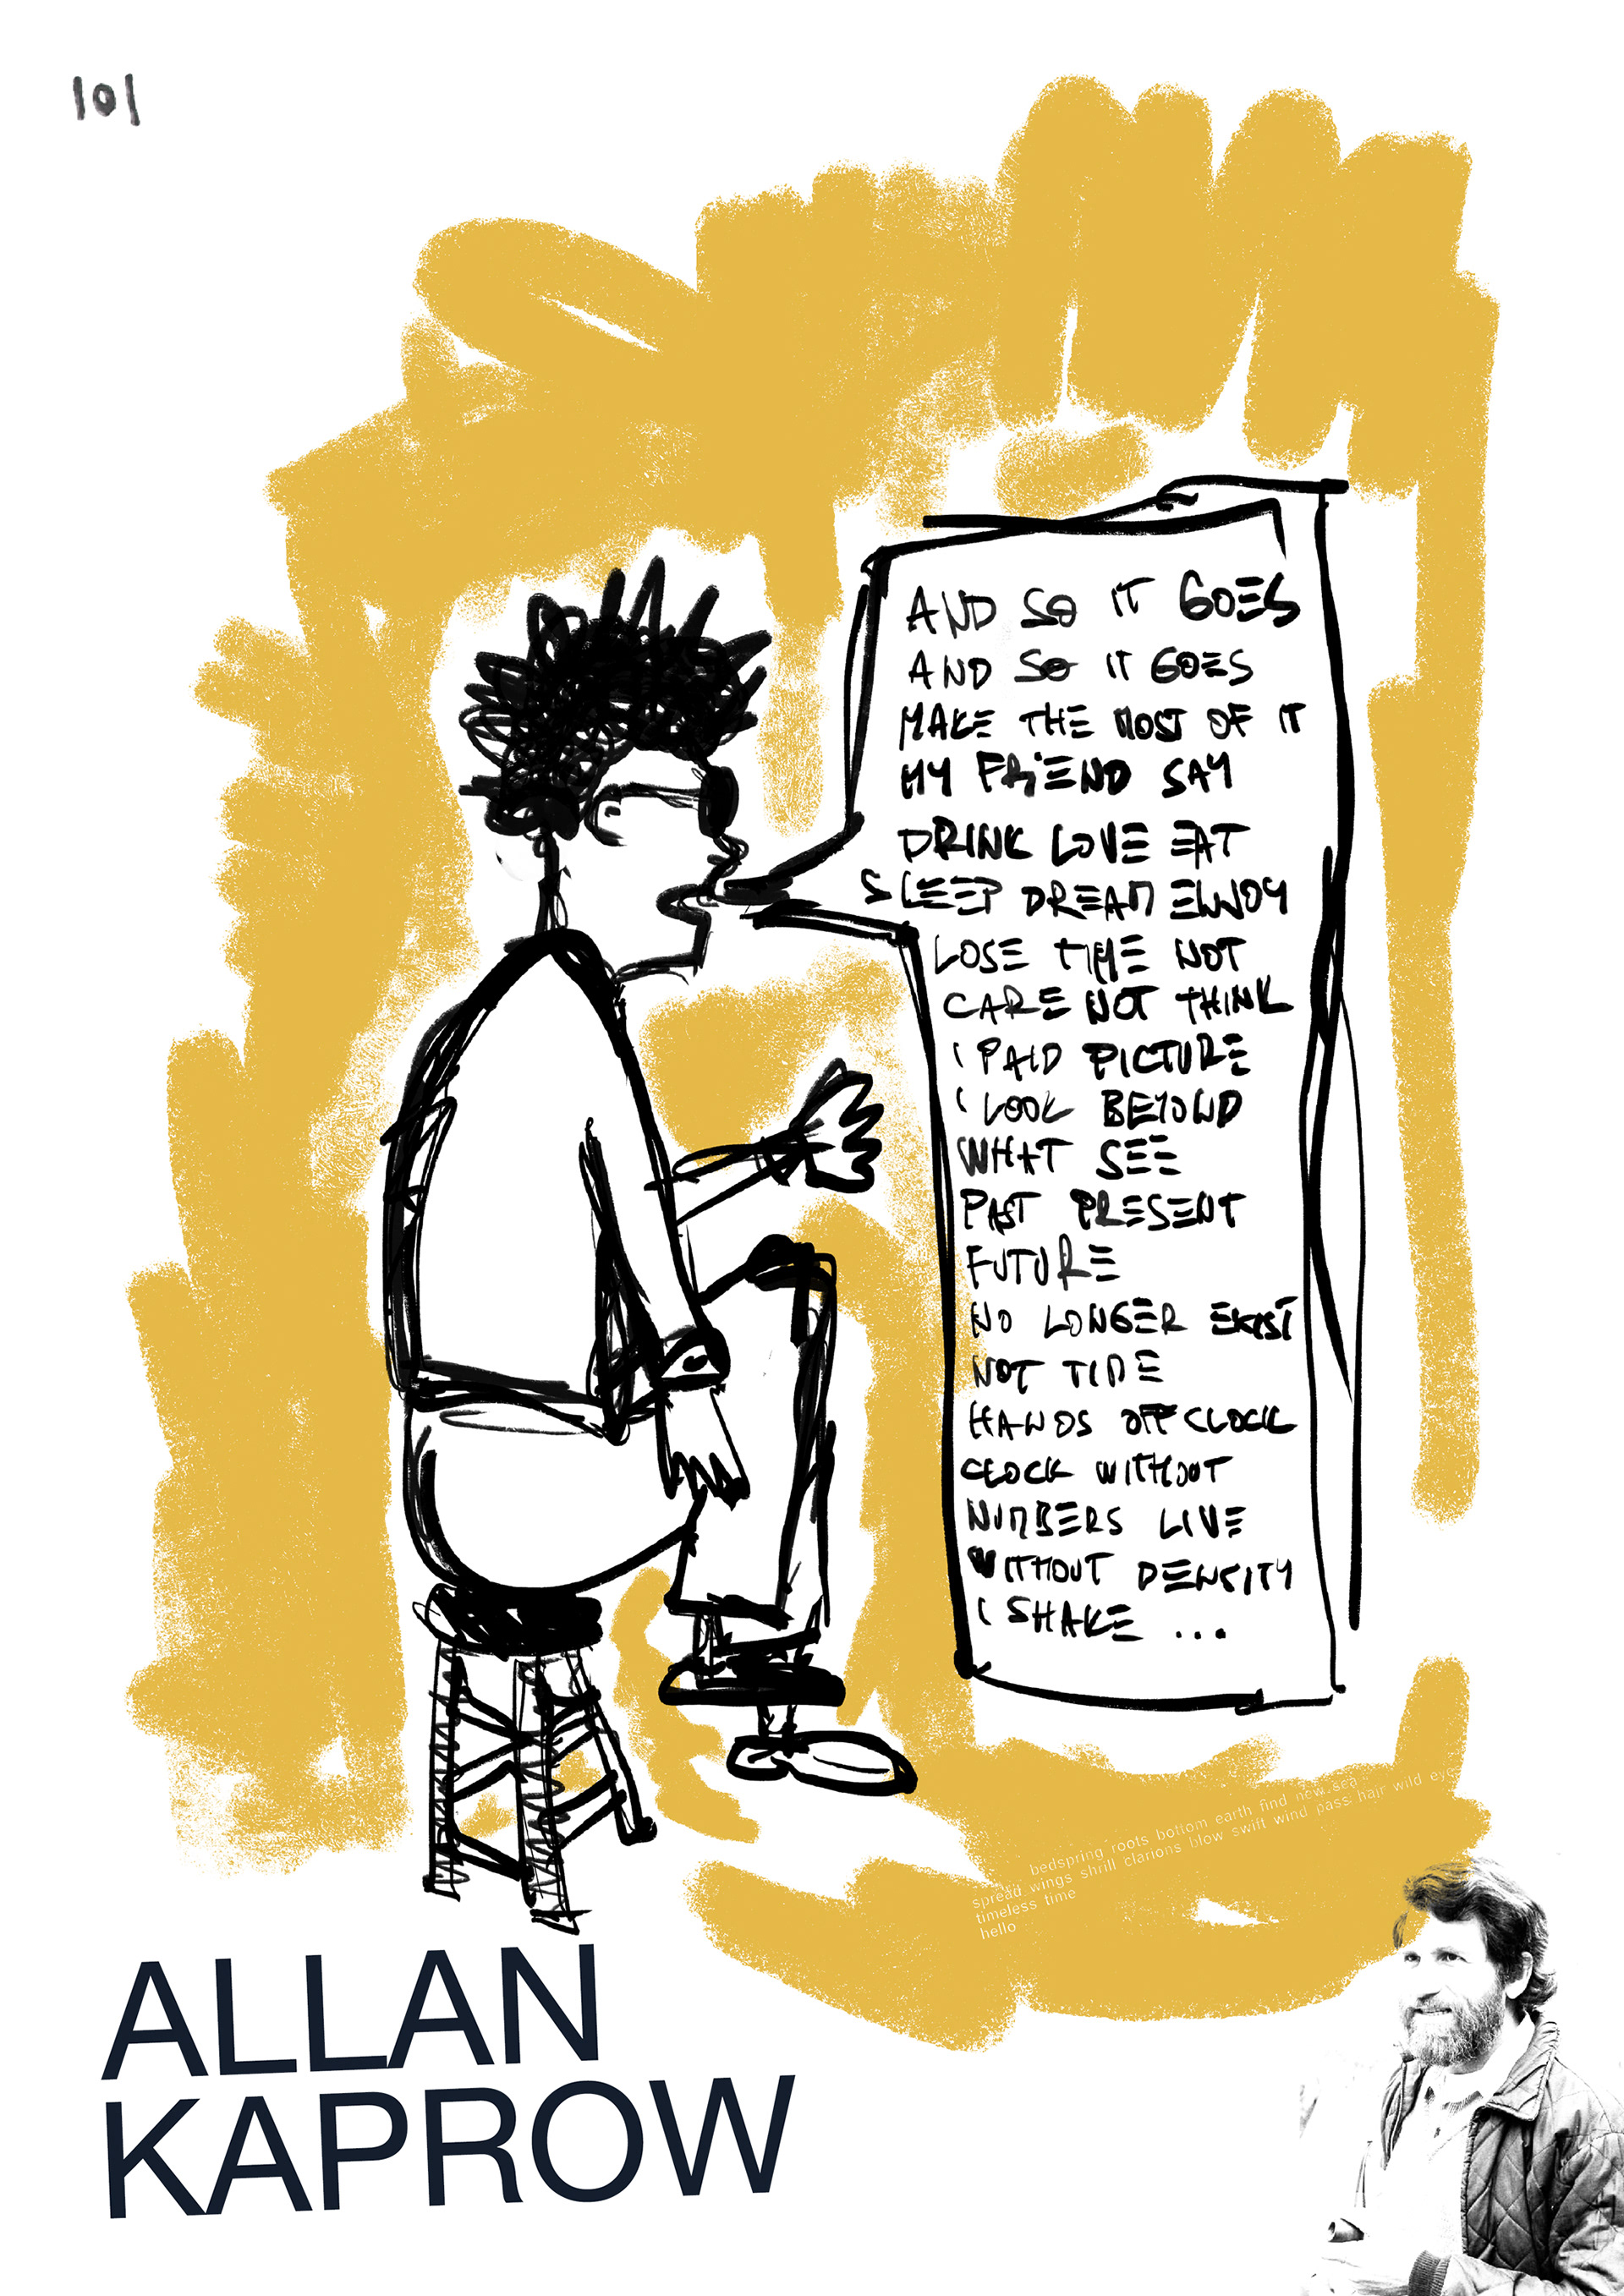 101
AND SO IT GOES
AND SO IT GOES
MAKE THE MOST OF IT
MY FRiEND SAY
DRINK LOVE EAT
SLEEP DREAM ENJOY
LOSE TIME NOT
CARE NOT THINK
I PAID PICTURE
I LOOK BEYOND
WHAT SEE
PAST PRESENT
FUTURE
NO LONGER EXIST
NOT TIDE
HANDS OFF CLOCK
CLOCK WITHOUT
NUMBERS LIVE
WITHOUT DENSITY
I SHAKE ...
bedspring roots bottom earth find new sea
spread wings shrill clarions blow swift wind pass hair wild eyes
timeless time
hello
ALLAN
KAPROW